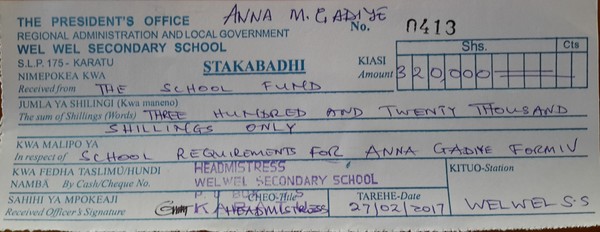 THE PRESIDENT'S OFFICE ANNA M. GADIYE
REGIONAL ADMINISTRATION AND LOCAL GOVERNMENT No. 0413
WEL WEL SECONDARY SCHOOL
S.L.P. 175 - KARATU STAKABADHI KIASI Shs. Cts
NIMEPOKEA KWA Amount 320,000
Received from THE SCHOOL FUND
JUMLA YA SHILINGI (Kwa maneno)
The sum of Shillings (Words) THREE HUNDRED AND TWENTY THOUSAND
SHILLINGS ONLY
KWA MALIPO YA
In respect of SCHOOL REQUIREMENTS FOR ANNA GADIYE FORM IV
KWA FEDHA TASLIMU/HUNDI HEADMISTRESS KITUO-Station
NAMBA By Cash/Cheque No. WELWEL SECONDARY SCHOOL
SAHIHI YA MPOKEAJI CHEO-Title TAREHE-Date
Received Officer's Signature HEADMISTRESS 27/02/2017 WELWEL S.S